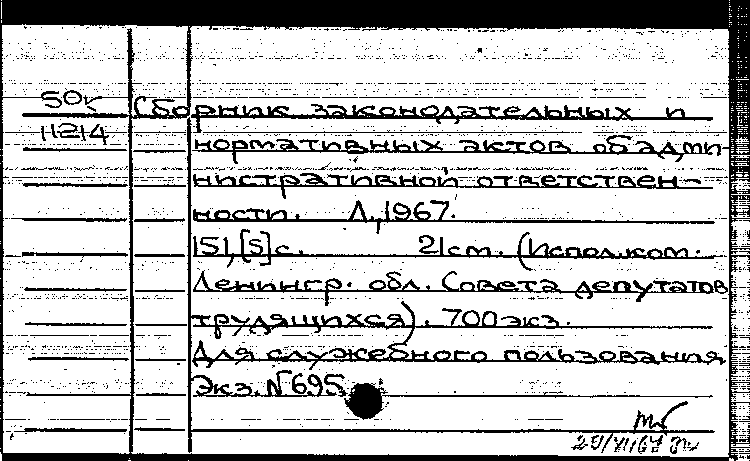 50к
11214
Сборник законодательных и
нормативных актов об адми-
нистративной ответствен-
ности. Л., 1967.
151,[5]с. 21см. (Исполком.
Ленингр. обл. Совета депутатов
трудящихся). 700экз.
Для служебного пользования
Экз. №695